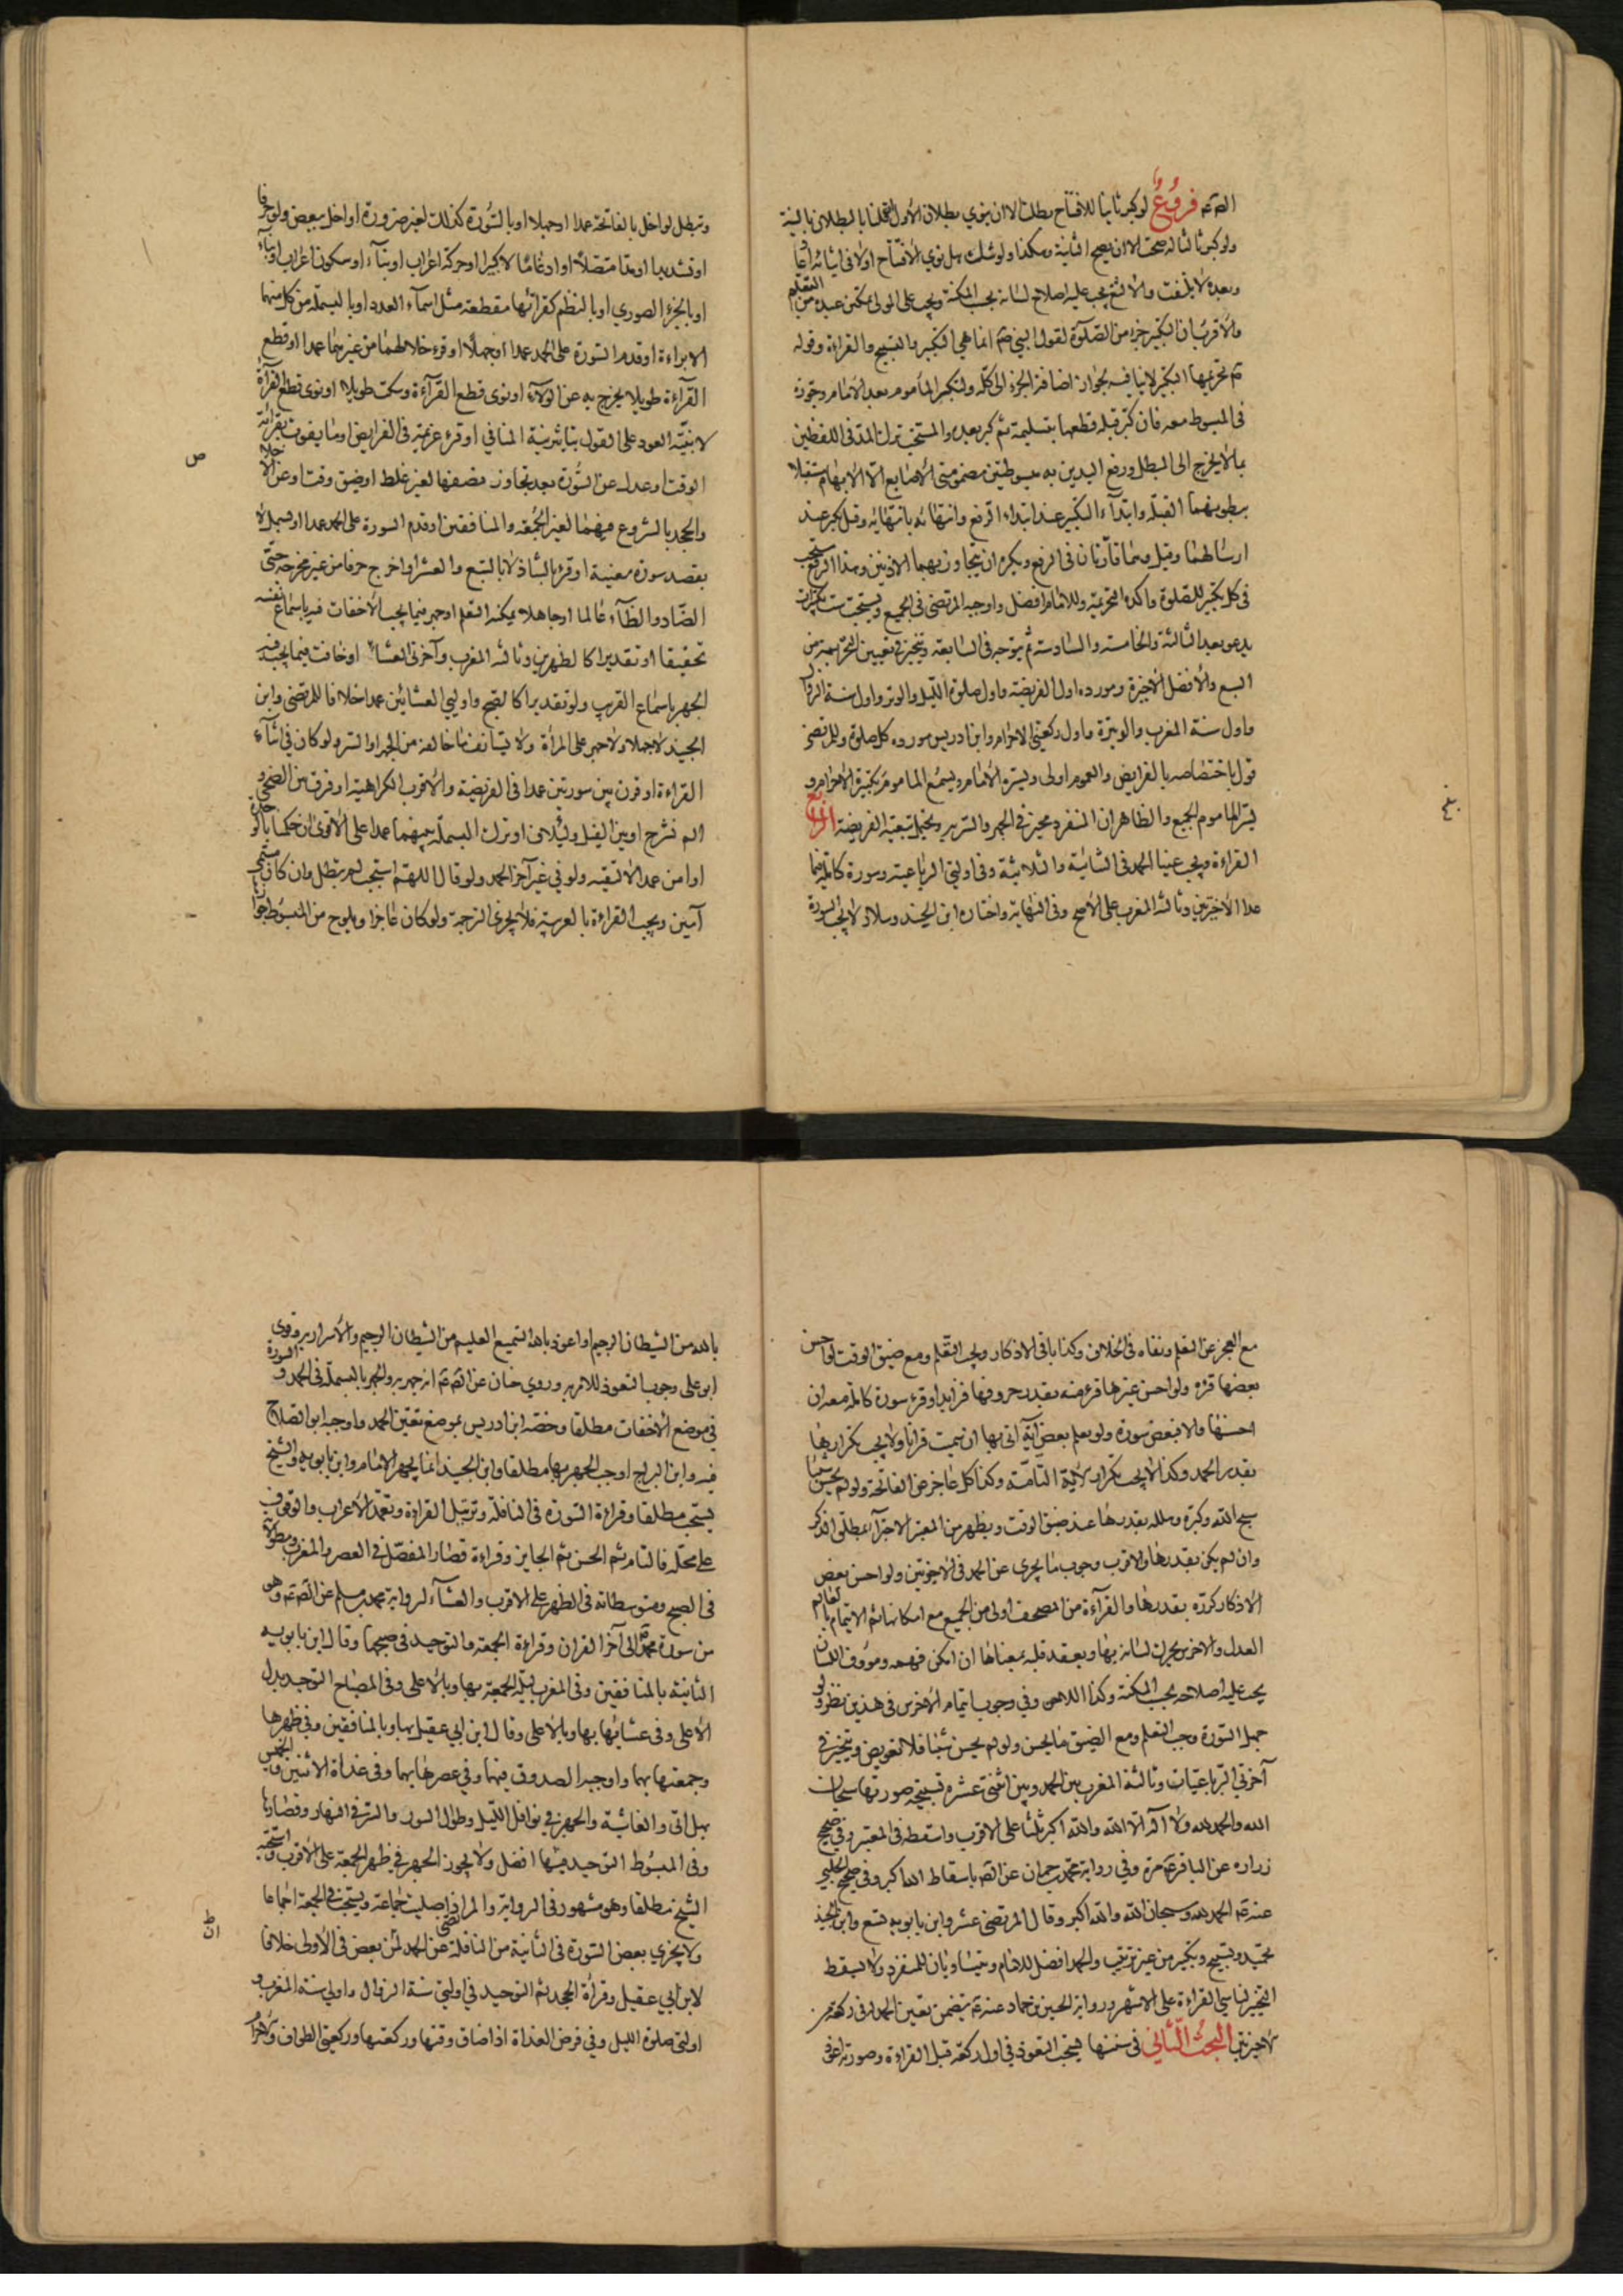 الصم عم فروع لو كبر ثانيا للافتتاح بطلت الا ان ينوي بطلان الاول اذا قلنا بالبطلان بالنية
ولو كبر ثالثا له صحت الا ان يصح الثانية وهكذا ولو شك هل نوي الافتتاح اولا في اثنائه اعاد
وبعده لا يلتفت والالثغ يجب عليه اصلاح لسانه بحسب المكنة ويجب على المولى تمكين عبده من التعلم
والاقرب ان التكبير جزء من الصلوة لقول النبي صم انما هي التكبير والتسبيح والقراءة وقوله
صم تحريمها التكبير لا ينافيه لجواز اضافة الجزء الى كله وليكبر المأموم بعد الامام وجوزه
في المبسوط معه فان كبر قبله قطعها بتسليمة ثم كبر بعده والمستحب ترك المد في اللفظين
بما لا يخرج الى المبطل ورفع اليدين به مبسوطتين مضمومتي الاصابع الا الابهام مستقبلا
ببطونهما القبلة وابتداء التكبير عند ابتداء الرفع وانتهائه بانتهائه وقيل يكبر عند
ارسالهما وقيل وهما قارتان في الرفع ويكره ان يتجاوز بهما الاذنين وهذا الرفع مستحب
في كل تكبير للصلوة واكده التحريمة وللامام افضل واوجبه المرتضى في الجميع ويستحب ست تكبيرات
يدعو بعد الثالثة والخامسة والسادسة ثم يتوجه في السابعة ويتخير في تعيين التحريمة من
السبع والافضل الاخيرة ومورده اول الفريضة واول صلوة الليل والوتر واول سنة الزوال
واول سنة المغرب والوتيرة واول ركعتي الاحرام وابن ادريس مورده كل صلوة وللمرتضى
قول باختصاصه بالفرايض والعموم اولى ويستره الامام ويسمع المأموم تكبيرة الاحرام و
يسر المأموم الجميع والظاهر ان المنفرد مخير في الجهر والسر به ويحتمل تبعية الفريضة الرابع
القراءة ويجب عينا الحمد في الثنائية والثلاثية وفي اوليتي الرباعية وسورة كاملة فيما
عدا الاخيرتين وثالثة المغرب على الاصح وفي النهاية واختاره ابن الجنيد وسلار لا يجب السورة
وتبطل لو اخل بالفاتحة عمدا او جهلا او بالسورة كذلك لغير ضرورة او اخل ببعض ولو حرفا
او تشديدا او مدا متصلا او ادغاما لا كبيرا او حركة اعراب او بناء او سكون اعراب او بناء
او بالجزء الصوري او بالنظم كقرائتها مقطعة مثل اسماء العدد او بالبسملة من كل منهما
الا براءة او قدم السورة على الحمد عمدا او جهلا او قرء خلالهما من غيرهما عمدا او قطع
القراءة طويلا يخرج به عن الولاء او نوى قطع القرآءة وسكت طويلا او نوى قطع القرآة
لا بنية العود على القول بتاثير نية المنافي او قرء عزيمة في الفرايض او ما يفوت بقرائته
الوقت او عدل عن السورة بعد تجاوز نصفها لغير غلط او ضيق وقت او عن الاخلاص
ص
والجحد بالشروع فيهما لغير الجمعة والمنافقين او قدم السورة على الحمد عمدا او بسمل لا
بقصد سورة معينة او قرء بالشاذ لا بالسبع والعشر او اخرج حرفا من غير مخرجه حتى
الضاد والظآء عالما او جاهلا يمكنه التعلم او جهر فيما يجب الاخفات فيه باسماع نفسه
تحقيقا او تقديرا كالظهرين وثالثة المغرب وآخرتي العشاء او خافت فيما يجب فيه
الجهر باسماع القريب ولو تقديرا كالصبح واوليي العشائين عمدا خلافا للمرتضى وابن
الجنيد لا جهلا ولا جهر على المرأة ولا يستأنف ما خالف من الجهر او السر ولو كان في اثناء
القراءة او قرن بين سورتين عمدا في الفريضة والاقرب الكراهية او فرق بين الضحى و
الم نشرح او بين الفيل ولئلاف او ترك البسملة بينهما عمدا على الاقوى ان حكمنا بالجزئية
او امن عمدا لا لتقية ولو في غير آخر الحمد ولو قال اللهم استجب لم تبطل وان كان
آمين ويجب القراءة بالعربية فلا يجزي الترجمة ولو كان عاجزا ويلوح من المبسوط جواز
مع العجز عن التعلم ونفاه في الخلاف وكذا باقي الاذكار ويجب التعلم ومع ضيق الوقت لو احسن
بعضها قرء ولو احسن غيرها قرء منه بقدر حروفها فزايدا وقرء سورة كاملة معه ان
احسنها والا فبعض سورة ولو يعلم بعض آية اتى بها ان سميت قرانا ولا يجب تكرارها
بقدر الحمد وكذا لا يجب تكرار الآية التامة وكذا كل عاجز عن الفاتحة ولو لم يحسن شيئا
سبح الله وكبره وهلله بقدرها عند ضيق الوقت ويظهر من المعتبر الاجزآء بمطلق الذكر
وان لم يكن بقدرها والاقرب وجوب ما يجزي عن الحمد في الاخيرتين ولو احسن بعض
الاذكار كرره بقدرها والقرآءة من المصحف اولى من الجميع مع امكانها ثم الايتمام بالعالم
العدل والاخرس يحرك لسانه بها ويعقد قلبه بمعناها ان امكن فهمه ومؤوف اللسان
يجب عليه اصلاحه بحسب المكنة وكذا اللاحن وفي وجوب ايتمام الاخرس في هذين نظر ولو
جهل السورة وجب التعلم ومع الضيق ما يحسن ولو لم يحسن شيئا فلا تعويض ويتخير في
آخرتي الرباعيات وثالثة المغرب بين الحمد وبين اثنتي عشرة تسبيحة صورتها سبحان
الله والحمد لله ولا اله الا الله والله اكبر ثلثا على الاقرب واسقطه في المعتبر وفي صحيح
زرارة عن الباقر عم مرة وفي رواية محمد بن حمران عن الصم باسقاط الله اكبر وفي صحيح الحلبي
عنه عم الحمد لله وسبحان الله والله اكبر وقال المرتضى عشر وابن بابويه تسع وابن الجنيد
تحميد وتسبيح وتكبير من غير ترتيب والحمد افضل للامام ويتساويان للمنفرد ولا يسقط
التخيير لناسي القراءة على الاشهر ورواية الحسين بن حماد عنه عم يتضمن تعيين الحمد في ركعة من
الاخيرتين البحث الثاني في سننها يستحب التعوذ في اول ركعة قبل القراءة وصورته اعوذ
بالله من الشيطان الرجيم او اعوذ بالله السميع العليم من الشيطان الرجيم والاسرار به وروى
ابو علي وجوب التعوذ للامر به وروي حنان عن الصم عم انه جهر به والجهر بالبسملة في الحمد والسورة
في موضع الاخفات مطلقا وخصه ابن ادريس بموضع تعين الحمد واوجبه ابو الصلاح
فيه وابن البراج اوجب الجهر بها مطلقا وابن الجنيد انما يجهر الامام وابن بابويه والشيخ
يستحب مطلقا وقراءة السورة في النافلة وترتيل القراءة وتعمد الاعراب والوقوف
على محله فالتام ثم الحسن ثم الجايز وقراءة قصار المفصل في العصر والمغرب ومطولاته
في الصبح ومتوسطاته في الظهر على الاقرب والعشآء لرواية محمد بن مسلم عن الصم عم وهو
من سورة محمد الى آخر القران وقراءة الجمعة والتوحيد في صبحها وقال ابن بابويه
الثانية بالمنافقين وفي المغرب ليلة الجمعة بها وبالاعلى وفي المصباح التوحيد بدل
الاعلى وفي عشائها بها وبالاعلى وقال ابن ابي عقيل بها وبالمنافقين وفي ظهرها
وجمعتها بهما واوجبه الصدوق فيهما وفي عصرها بهما وفي غداة الاثنين والخميس
بهل اتى والغاشية والجهر في نوافل الليل وطوال السور والسر في النهار وقصارها
وفي المبسوط التوحيد فيها افضل ولا يجوز الجهر في ظهر الجمعة على الاقرب واستحبه
الشيخ مطلقا وهو مشهور في الرواية والمرتضى اذا صليت جماعة ويستحب في الجمعة اجماعا
ولا يجزي بعض السورة في الثانية من النافلة عن الحمد لمن بعض في الاولى خلافا
لابن ابي عقيل وقرأة الجحد ثم التوحيد في اوليتي سنة الزوال واوليي سنة المغرب و
اوليي صلوة الليل وفي فرض الغداة اذا ضاق وقتها وركعتيها وركعتي الطواف والاحرام